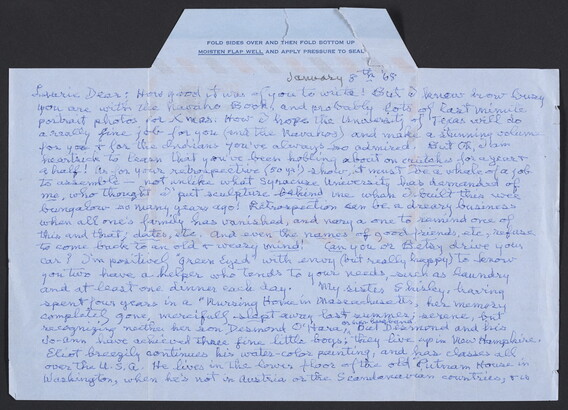 FOLD SIDES OVER AND THEN FOLD BOTTOM UP
MOISTEN FLAP WELL AND APPLY PRESSURE TO SEAL
January 8th 68
Dear: How good it was of you to write! But I know how busy
you are with the Navaho Book, and probably lots of last minute
portrait photos for Xmas. How I hope the University of Texas will do
a really fine job for you (and the Navahos) and make a stunning volume
for you & for the Indians you've always so admired. But Oh, I am
heartsick to learn that you've been hobling about on crutches for a year &
a half! As for your retrospective (50 yrs!) show, it must be a whole of a job
to assemble — not unlike what Syracuse University has demanded of
me, who thought I'd put sculpture behind me when I built this wee
bungalow so many years ago! Retrospection can be a dreary business
when all one's family has vanished, and nary a one to remind one of
this and that, dates, etc. And even the names of good friends, etc, refuse
to come back to an old & weary mind! Can you or Betsy drive your
car? I'm positively "Green Eyed" with envy (but really happy) to know
you two have a helper who tends to your needs, such as laundry
and at least one dinner each day. My sister Shirley, having
spent four years in a "Nursing Home in Massachusetts, her memory
completely gone, mercifully slept away last summer; serene, but
recognizing neither her son Desmond O'Hara, But Desmond and his
Jo-ann have achieved three fine little boys; they live up in New Hampshire.
Eliot breezily continues his water-color painting, and has classes all
over the U.S.A. He lives in the lower floor of the old Putnam House in
Washington, when he's not in Austria or the Scandanavian countries, & is